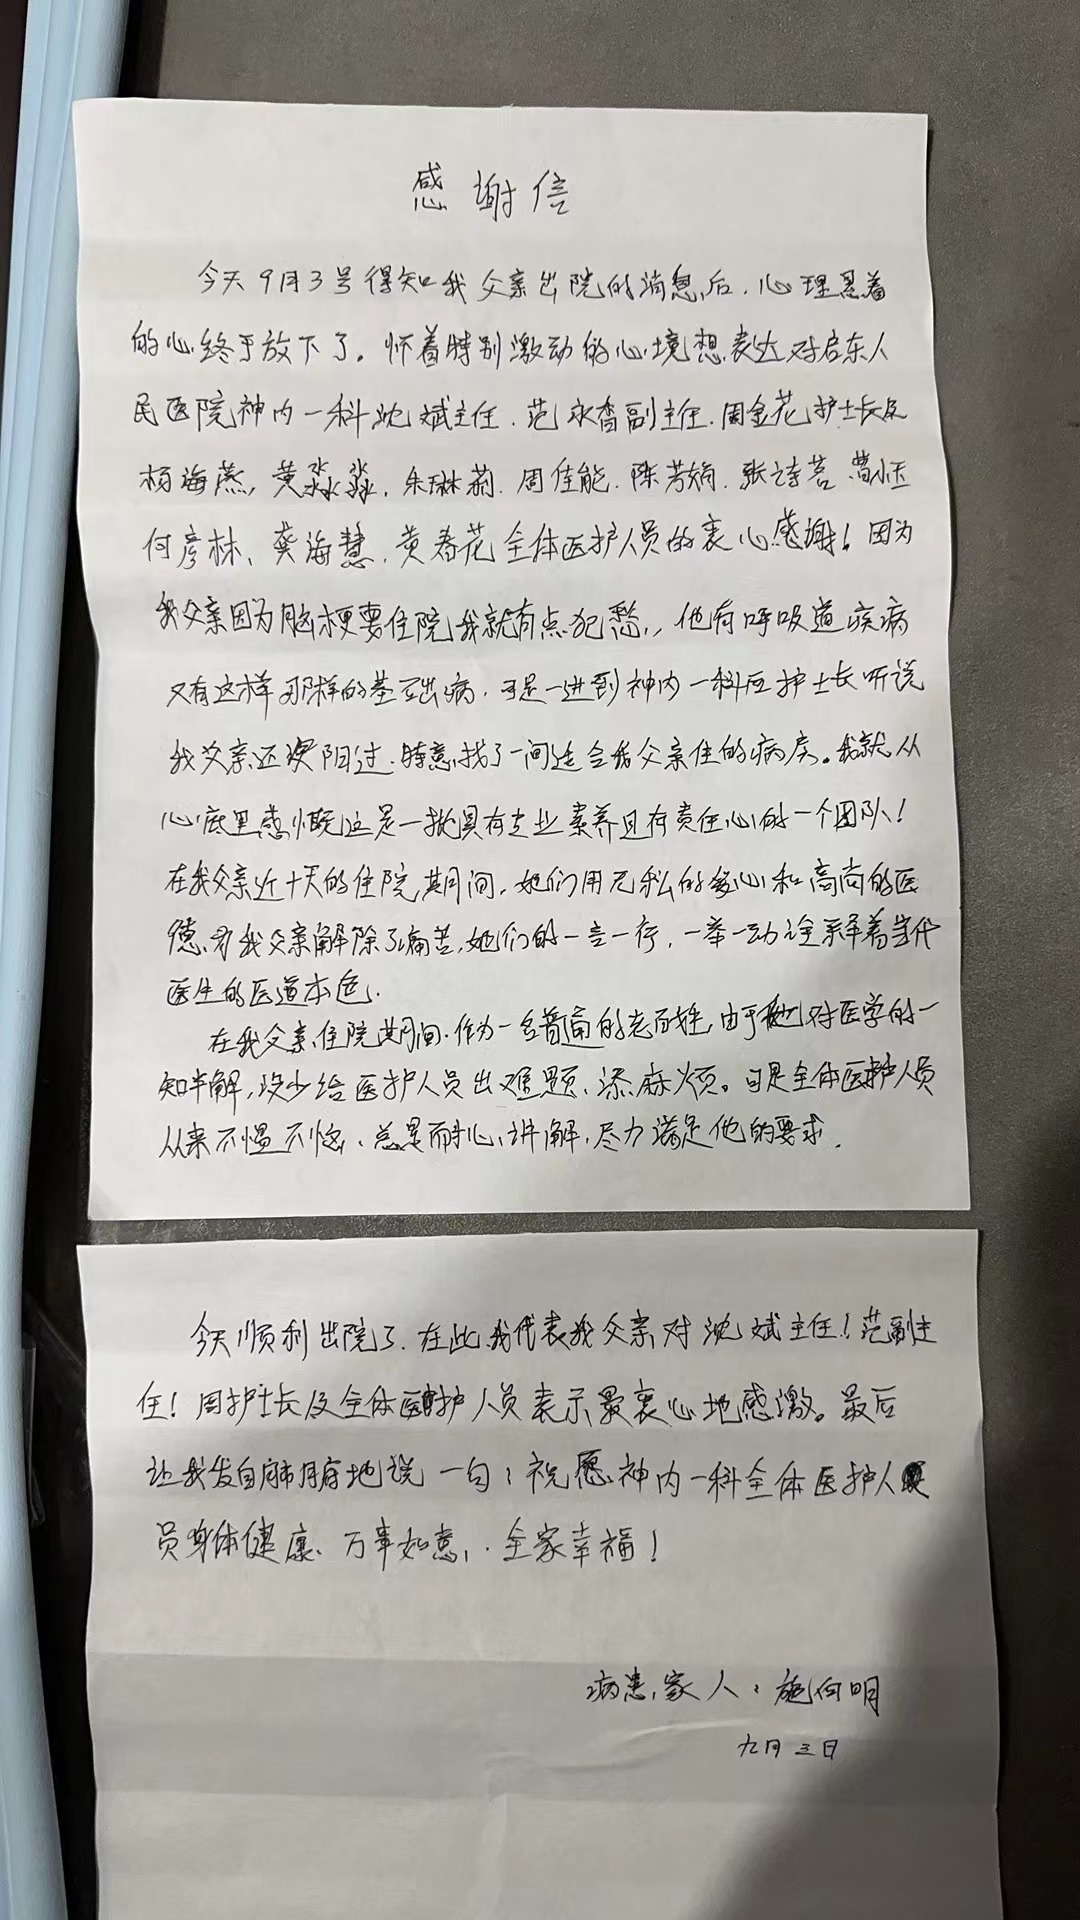 感谢信
今天9月3号得知我父亲出院的消息后，心理悬着
的心终于放下了。怀着特别激动的心境想表达对启东人
民医院神内一科沈斌主任、范永香副主任、周金花护士长及
杨海燕、黄淼淼、朱琳莉、周佳能、陈芳娟、张诗茗、曹
何彦林、龚海慧、黄春花全体医护人员的衷心感谢！因为
我父亲因为脑梗要住院我就有点犯愁，他有呼吸道疾病
又有这样那样的基础病，可是一进到神内一科后护士长听说
我父亲还没阳过，特意找了一间适合我父亲住的病房。我就从
心底里感慨这是一批具有专业素养且有责任心的一个团队！
在我父亲近十天的住院期间，她们用无私的爱心和高尚的医
德，为我父亲解除了痛苦，她们的一言一行，一举一动诠释着当代
医生的医道本色。
在我父亲住院期间，作为一名普通的老百姓，由于他对医学的一
知半解，没少给医护人员出难题、添麻烦。可是全体医护人员
从来不愠不恼，总是耐心讲解，尽力满足他的要求。
今天顺利出院了，在此我代表我父亲对沈斌主任！范副主
任！周护士长及全体医护人员表示最衷心地感激。最后
让我发自肺腑地说一句：祝愿神内一科全体医护人
员身体健康、万事如意、全家幸福！
病患家人：施向明
九月三日